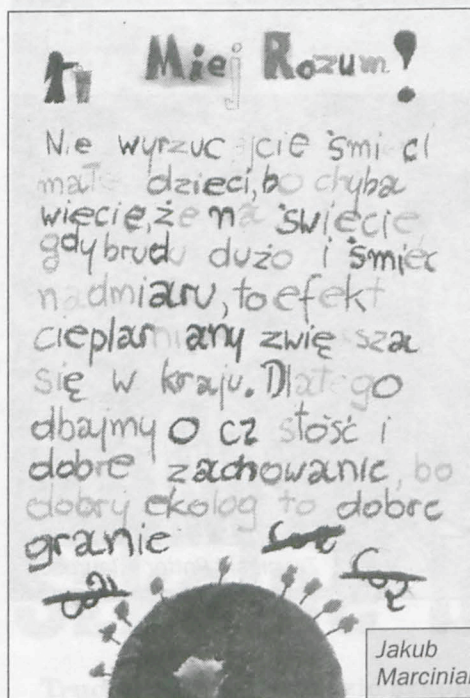 Miej Rozum!
Nie wyrzucajcie śmieci
małe dzieci, bo chyba
więcie, że na świecie,
gdy brudu dużo i śmieć
nadmiaru, to efekt
cieplarniany zwiększa
się w kraju. Dlatego
dbajmy o cz stość i
dobre zachowanie, bo
dobry ekolog to dobre
granie
CO2
CO2
CO2
Jakub
Marcinia